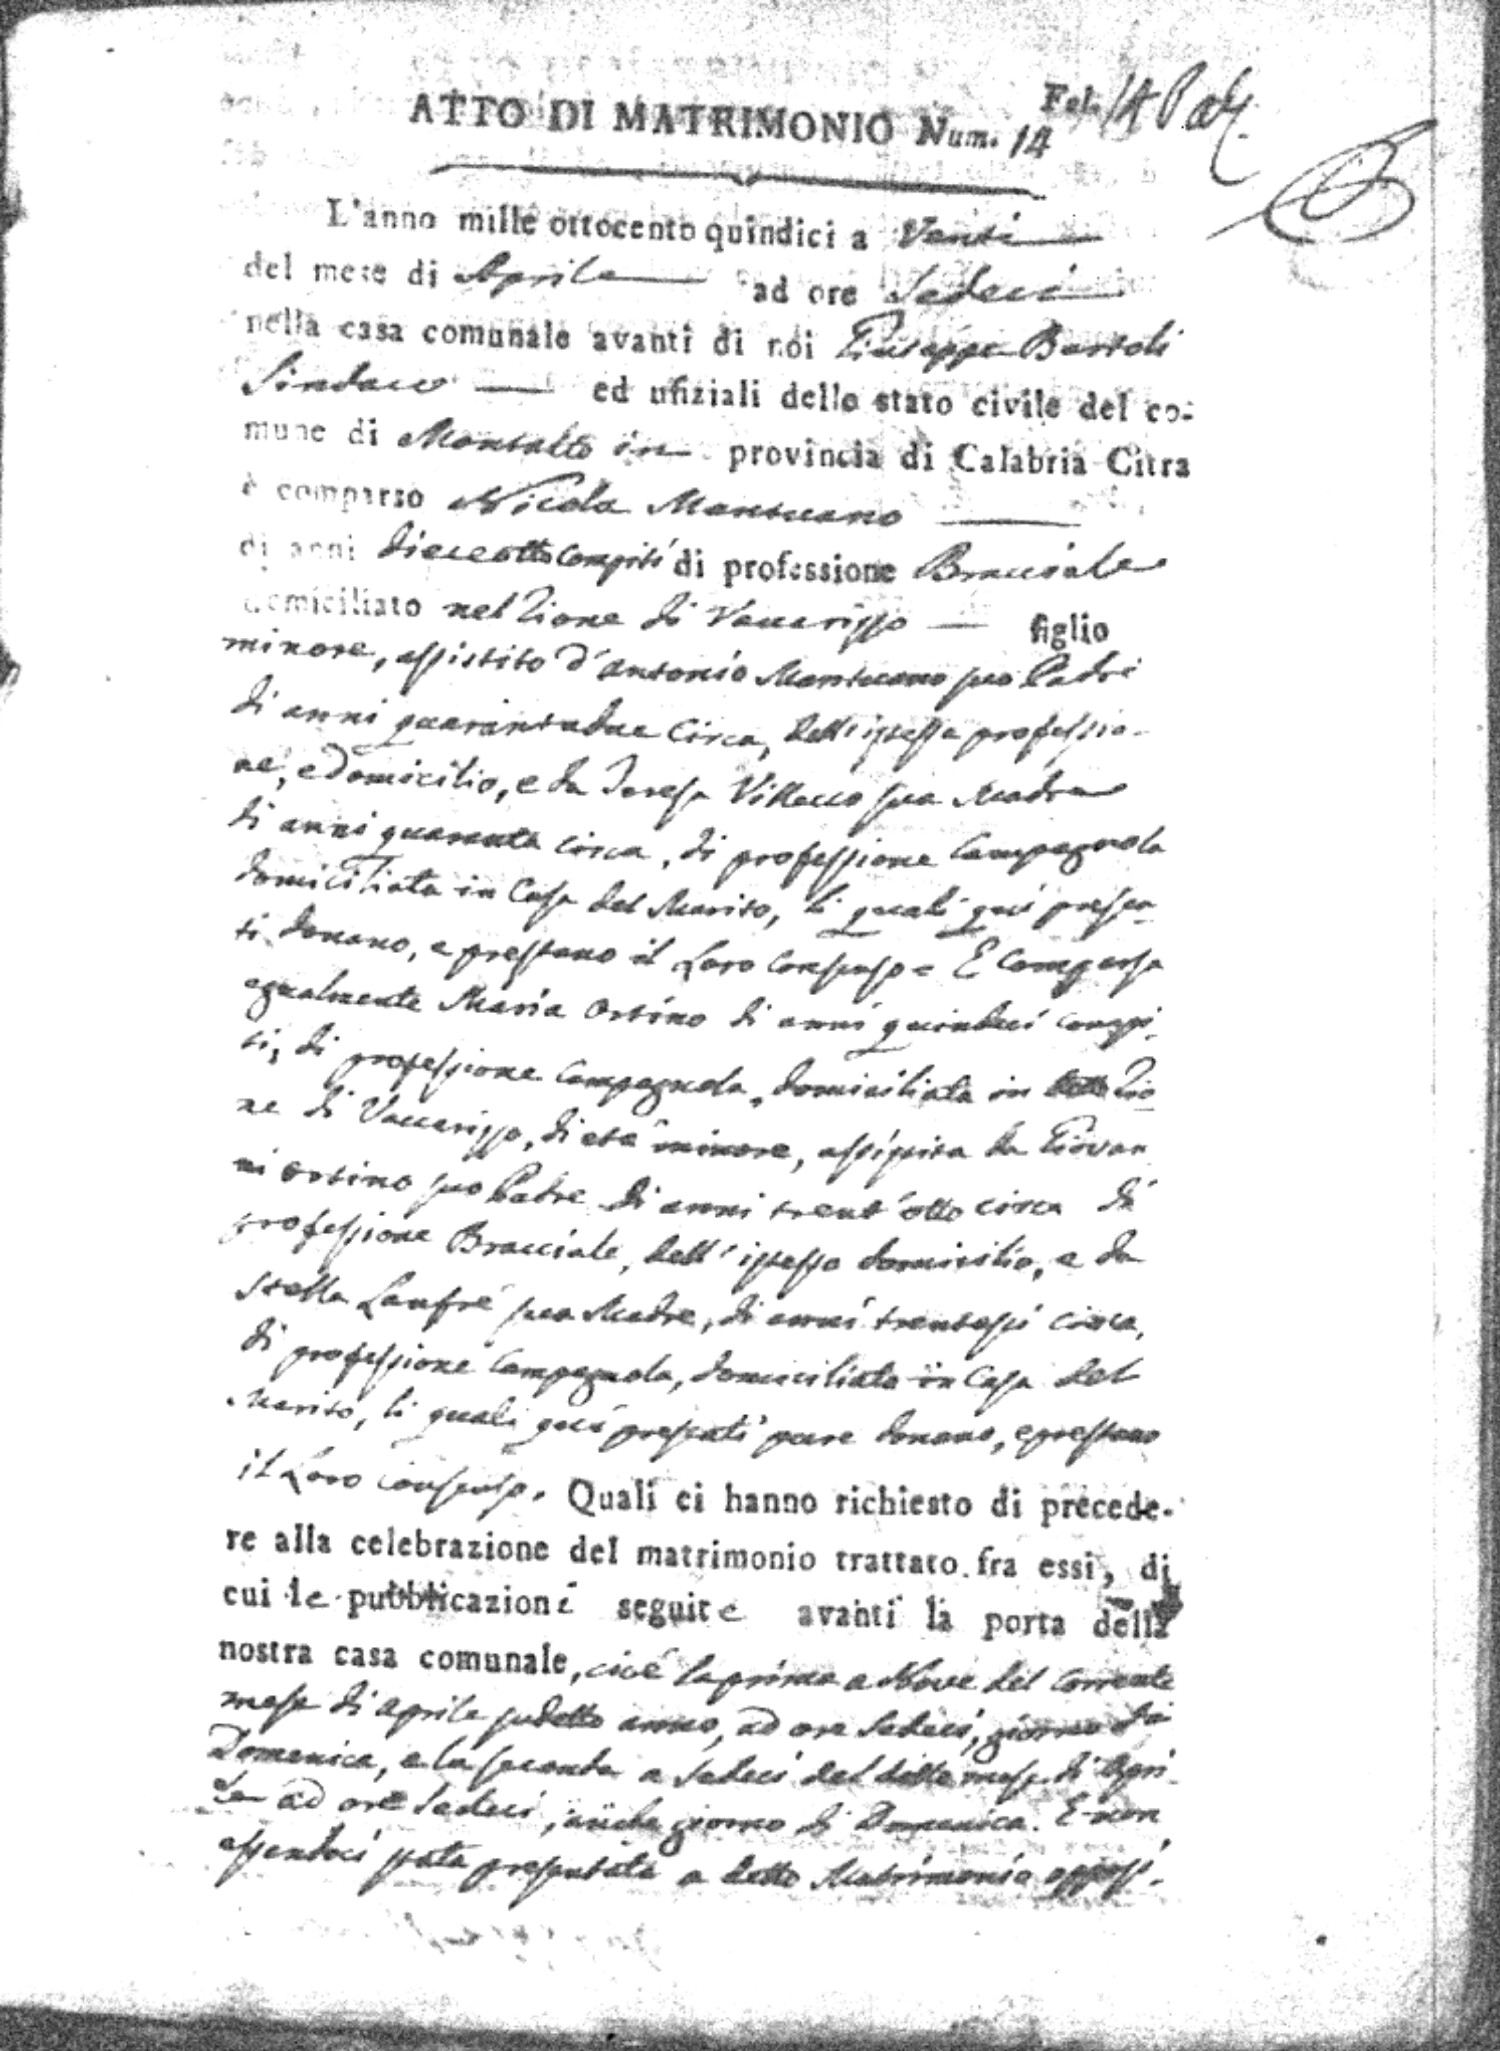 Fol. 14
ATTO DI MATRIMONIO Num. 14
L'anno mille ottocento quindici a Venti
del mese di Aprile ad ore Sedeci
nella casa comunale avanti di noi Giuseppe Bartoli
Sindaco ed ufiziali dello stato civile del co-
mune di Montalto in provincia di Calabria Citra
è comparso Nicola Mantuano
di anni dieceotto compiti di professione Bracciale
domiciliato nel Rione di Vaccarizzo figlio
minore, assistito d'Antonio Mantuano suo Padre
di anni quarantadue circa, dell'istessa professio-
ne, e domicilio, e da Teresa Villacco sua Madre
di anni quaranta circa, di professione Campagnola
domiciliata in Casa del Marito, li quali quì presen
ti donano, e prestano il Loro Consenso = E Comparsa
egualmente Maria Ortino di anni quindeci compi-
ti, di professione Campagnola, domiciliata in detto Rio
ne di Vaccarizzo, di età minore, assistita da Giovan
ni Ortino suo Padre di anni trent'otto circa di
professione Bracciale, dell'istesso domicilio, e da
Stella Lanfrè sua Madre, di anni trentasei circa,
di professione Campagnola, domiciliata in Casa del
Marito, li quali quì presenti pure donano, e prestano
il Loro consenso. Quali ci hanno richiesto di precede-
re alla celebrazione del matrimonio trattato fra essi, di
cui le pubblicazioni seguite avanti la porta della
nostra casa comunale, cioè la prima a Nove del corrente
mese di aprile sudetto anno, ad ore Sedeci, giorno di
Domenica, e la seconda a sedeci del detto mese di Apri-
le ad ore Sedeci, anche giorno di Domenica. E non
essendoci stata presentata a detto Matrimonio opposi-